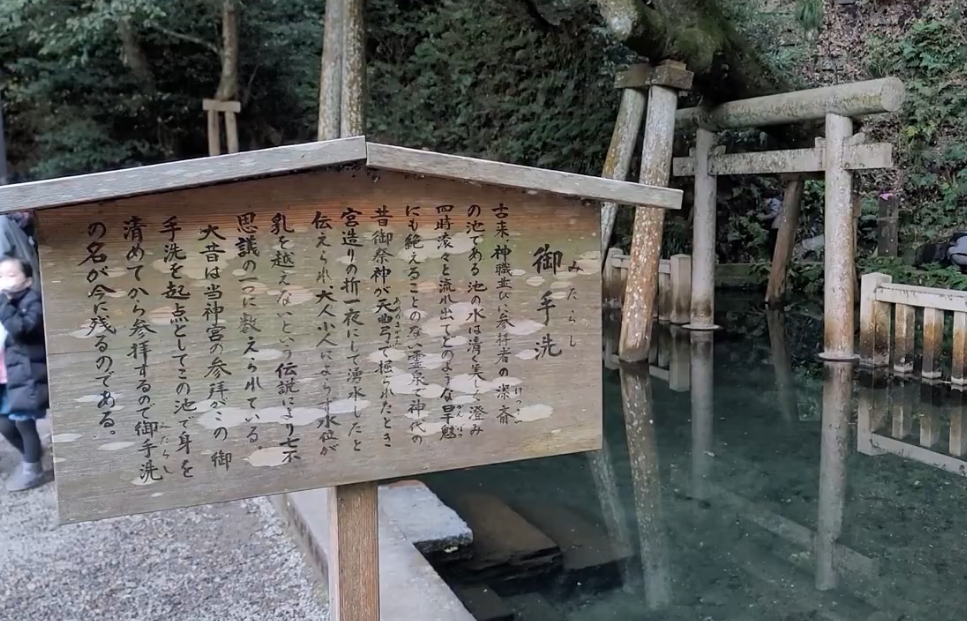 御手洗
みたらし
古来、神職並びに参拝者の潔斎
の池である。池の水は清く美しく澄み
四時滾々と流れ出てどのような旱魃
にも絶えることのない霊泉で神代の
昔御祭神が天曲弓で掘られたとき
宮造りの折一夜にして湧水したと
伝えられ、大人小人によらず水位が
乳を越えないという伝説により七不
思議の一つに数えられている。
大昔は当神宮の参拝がこの御
手洗を起点としてこの池で身を
清めてから参拝するので御手洗
みたらし
の名が今に残るのである。